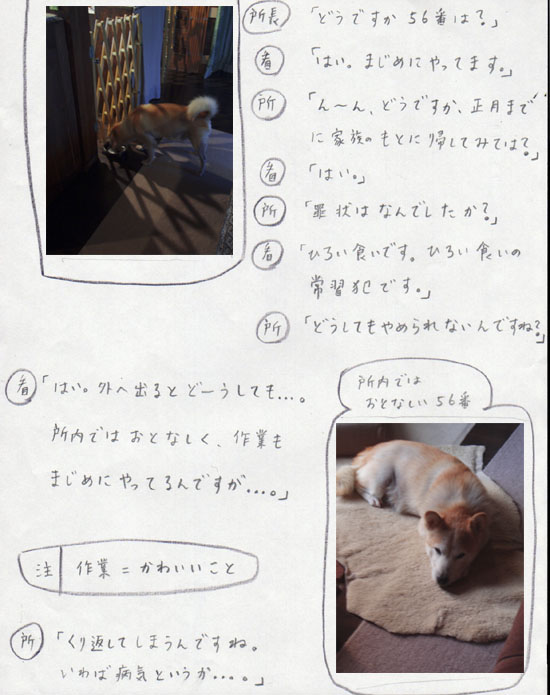 所長 「どうですか 56番は?」
看 「はい。まじめにやってます。」
所 「ん〜ん、どうですか、正月まで
に家族のもとに帰してみては?」
看 「はい。」
所 「罪状はなんでしたか?」
看 「ひろい食いです。ひろい食いの
常習犯です。」
所 「どうしてもやめられないんですね?」
看 「はい。外へ出るとどーうしても...。
所内ではおとなしく、作業も
まじめにやってるんですが....。」
所内では
おとなしい56番
注 作業=かわいいこと
所 「くり返してしまうんですね。
いわば病気というか....。」